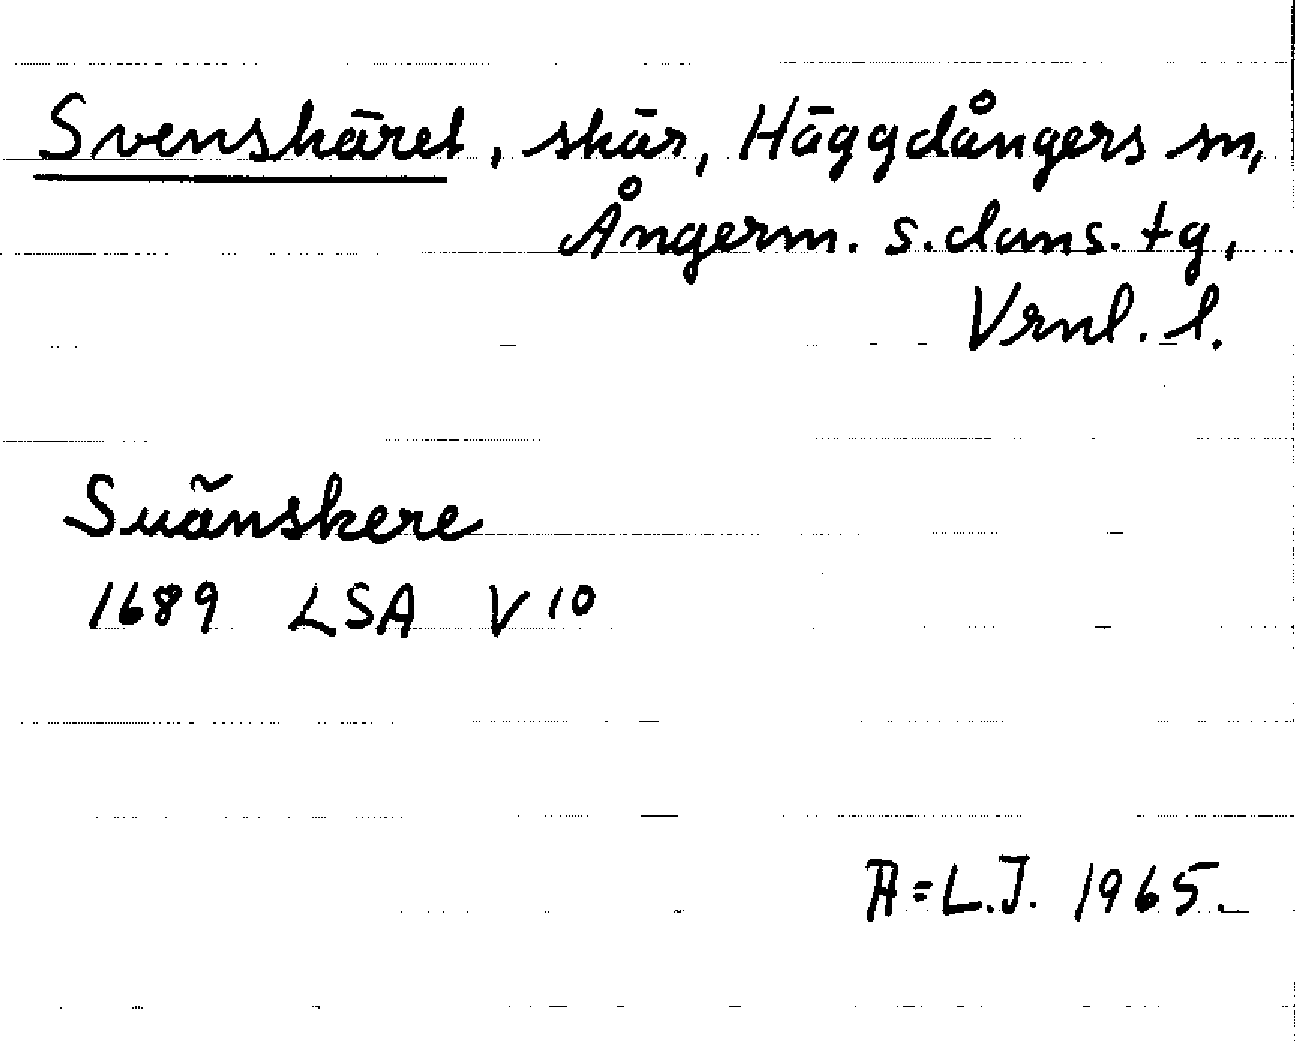 Svenskäret, skär, Häggdångers sn,
Ångerm. s. doms. tg,
Vrnl. l.
Suänskere
1689 LSA V 10
A=L.J. 1965.